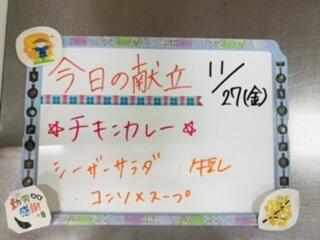 今日の献立
11/27(金)
☆チキンカレー☆
・シーザーサラダ ・牛乳
・コンソメスープ
勤労感謝の日